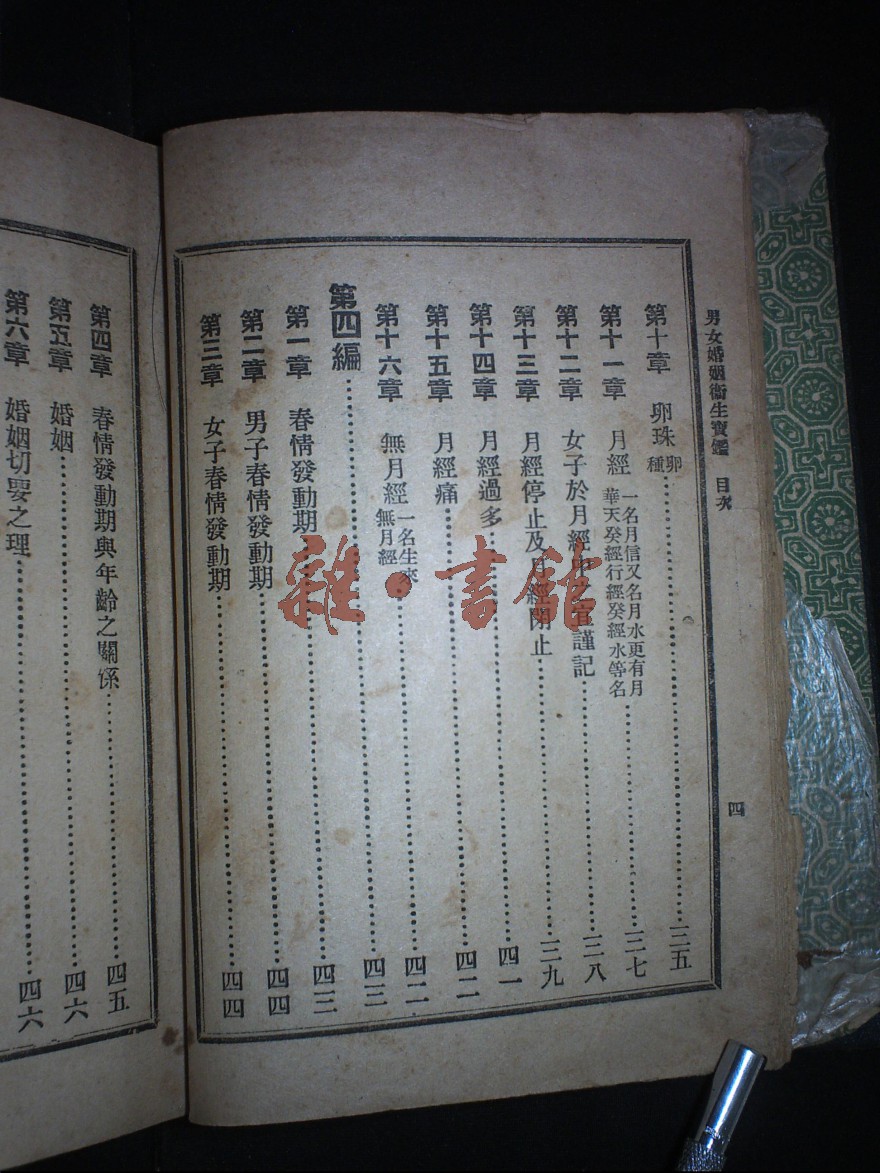 男女婚姻衞生寶鑑 目次 四
第十章 卵珠 卵種 三五
第十一章 月經 一名月信又名月水更有月華天癸經行經癸經水等名 三七
第十二章 女子於月經中之宜謹記 三八
第十三章 月經停止及月經閉止 三九
第十四章 月經過多 四一
第十五章 月經痛 四二
第十六章 無月經 一名生來無月經 四二
第四編 四三
第一章 春情發動期 四三
第二章 男子春情發動期 四四
第三章 女子春情發動期 四四
第四章 春情發動期與年齡之關係 四五
第五章 婚姻 四六
第六章 婚姻切要之理 四六
雜·書館